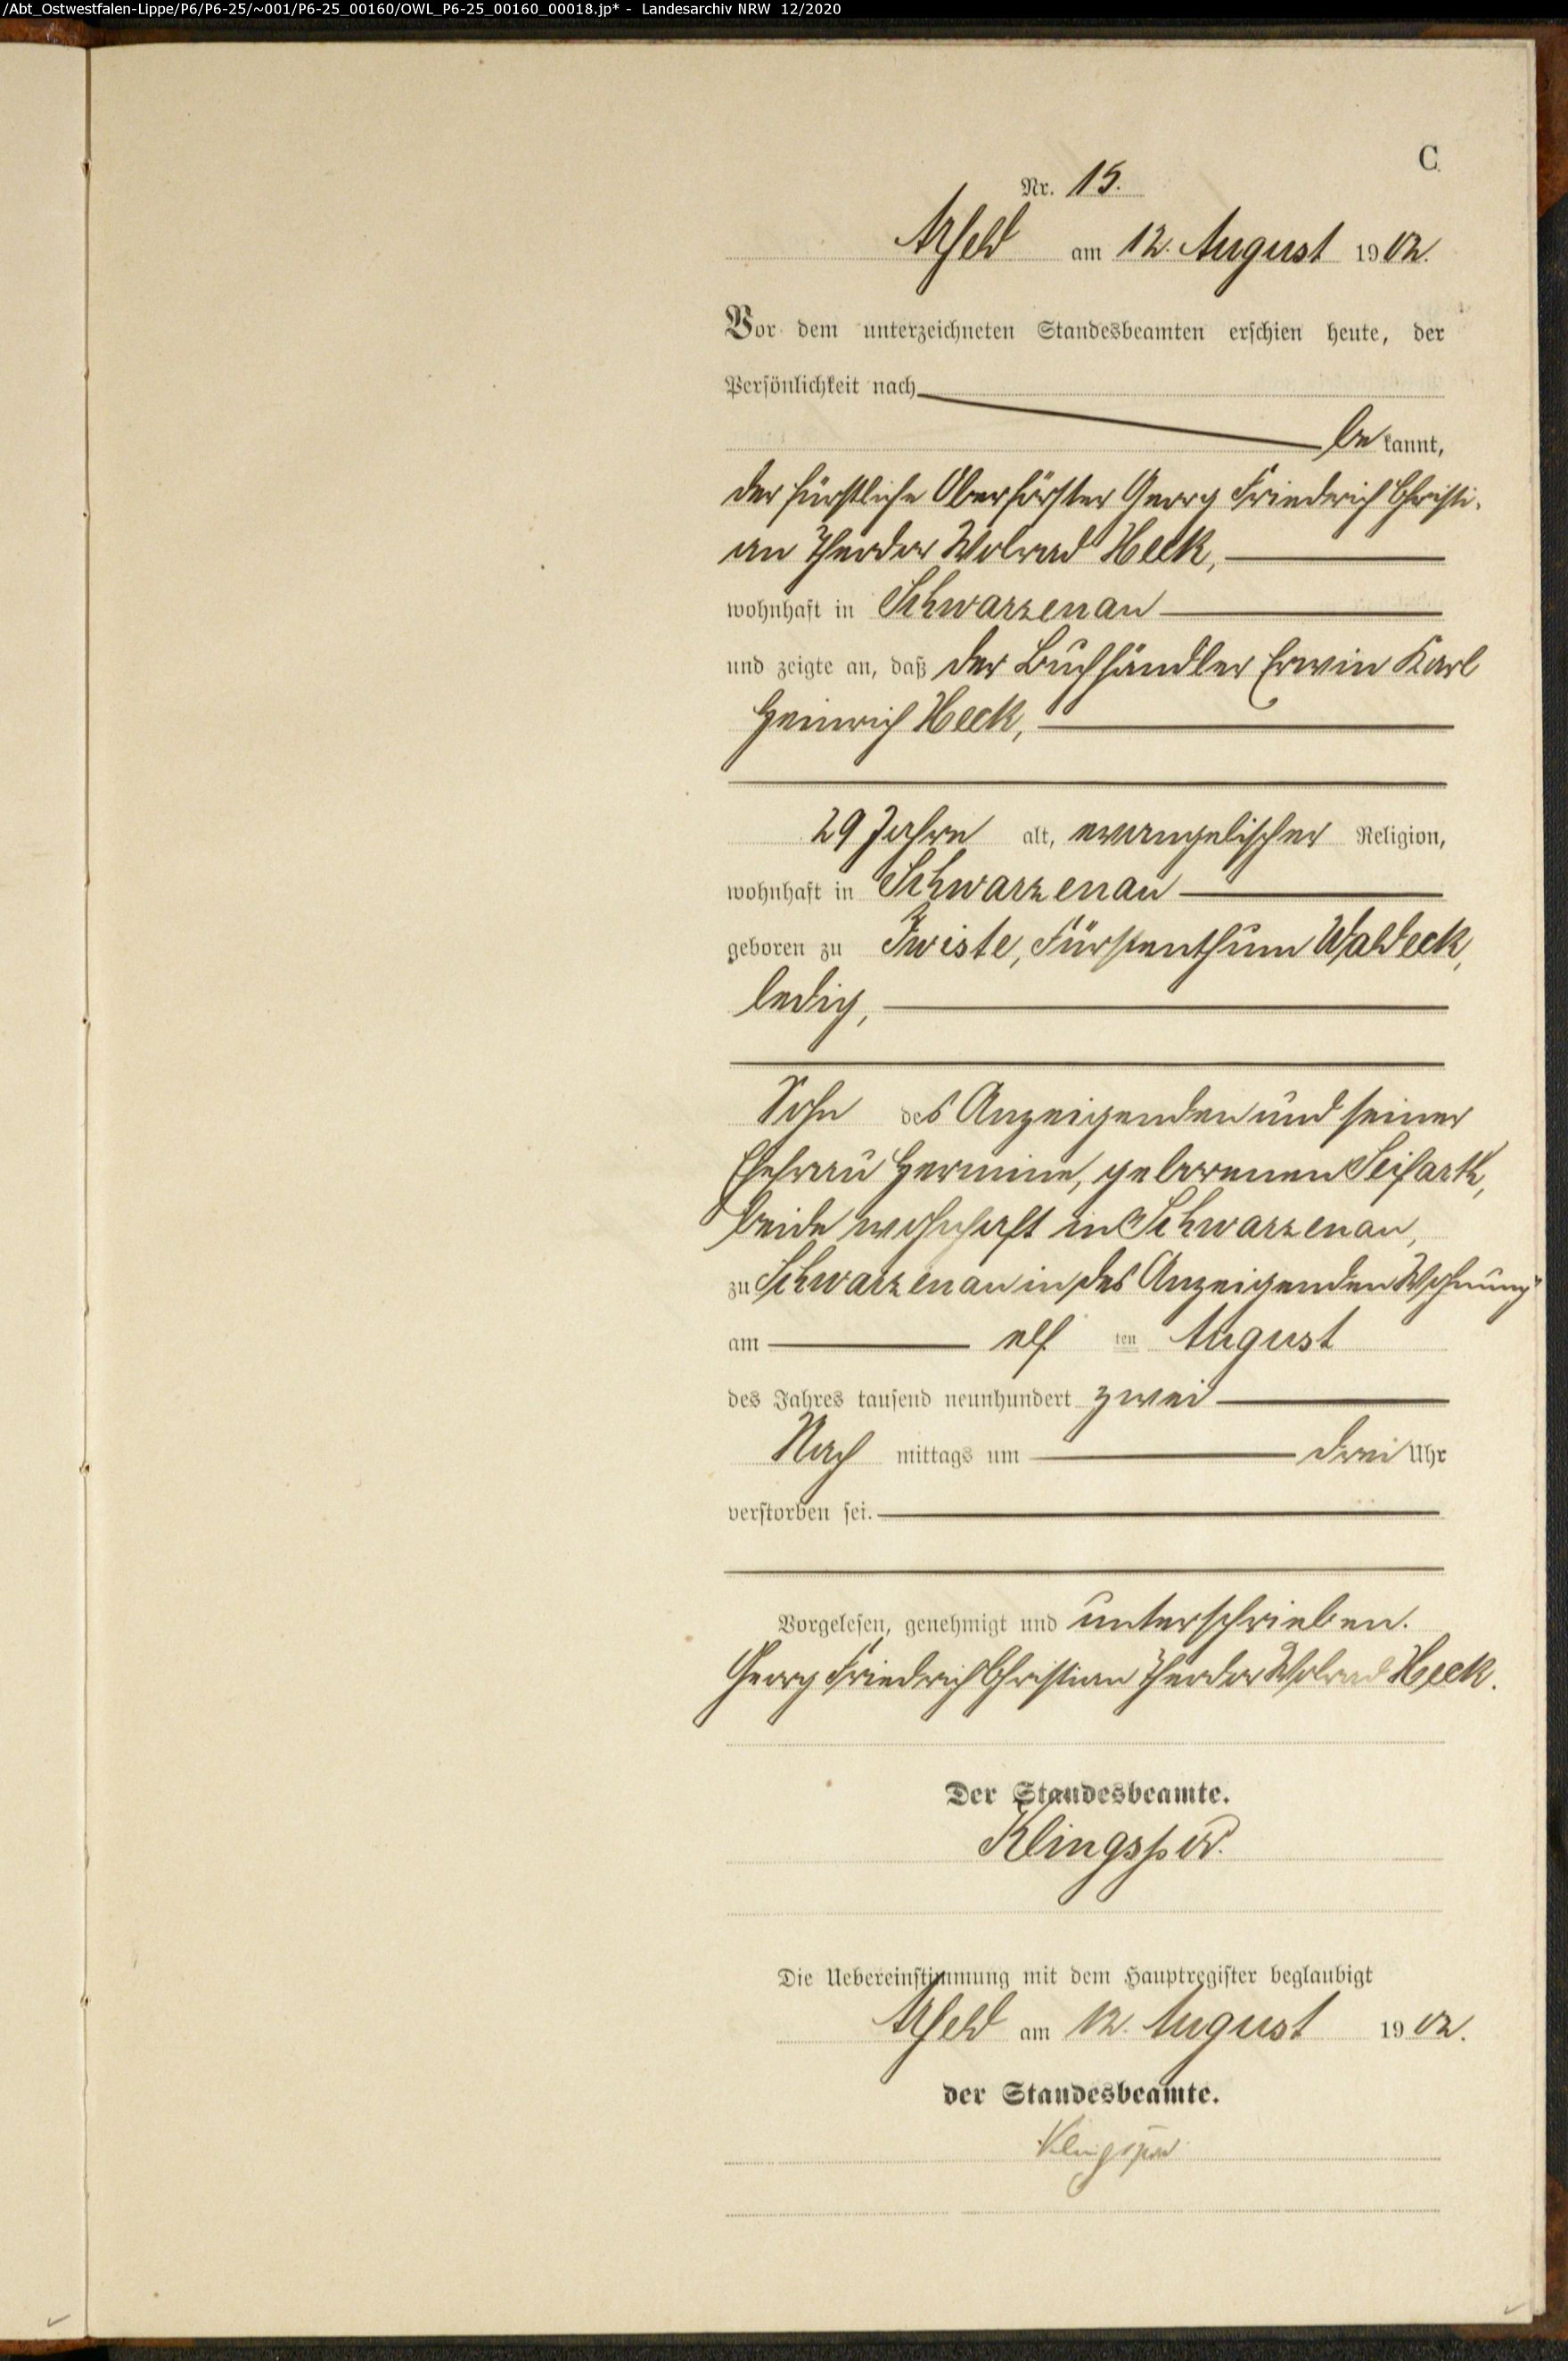 /Abt_Ostwestfalen-Lippe/P6/P6-25/~001/P6-25_00160/OWL_P6-25_00160_00018.jp* - Landesarchiv NRW 12/2020
C
Nr. 15.
Arfeld am 12. August 1902.
Vor dem unterzeichneten Standesbeamten erschien heute, der
Persönlichkeit nach
bekannt,
der fürstliche Oberförster Georg Friedrich Christi-
an Theodor Wolrad Heck,
wohnhaft in Schwarzenau
und zeigte an, daß der Buchhändler Erwin Karl
Heinrich Heck,
29 Jahre alt, evangelischer Religion,
wohnhaft in Schwarzenau
geboren zu Twiste, Fürstenthum Waldeck,
ledig,
Sohn des Anzeigenden und seiner
Ehefrau Hermine, geborenen Seifarth,
beide wohnhaft in Schwarzenau,
zu Schwarzenau in des Anzeigenden Wohnung
am elf ten August
des Jahres tausend neunhundert zwei
Nach mittags um drei Uhr
verstorben sei.
Vorgelesen, genehmigt und unterschrieben.
Georg Friedrich Christian Theodor Wolrad Heck.
Der Standesbeamte.
Klingspor.
Die Uebereinstimmung mit dem Hauptregister beglaubigt
Arfeld am 12. August 1902.
der Standesbeamte.
Klingspor